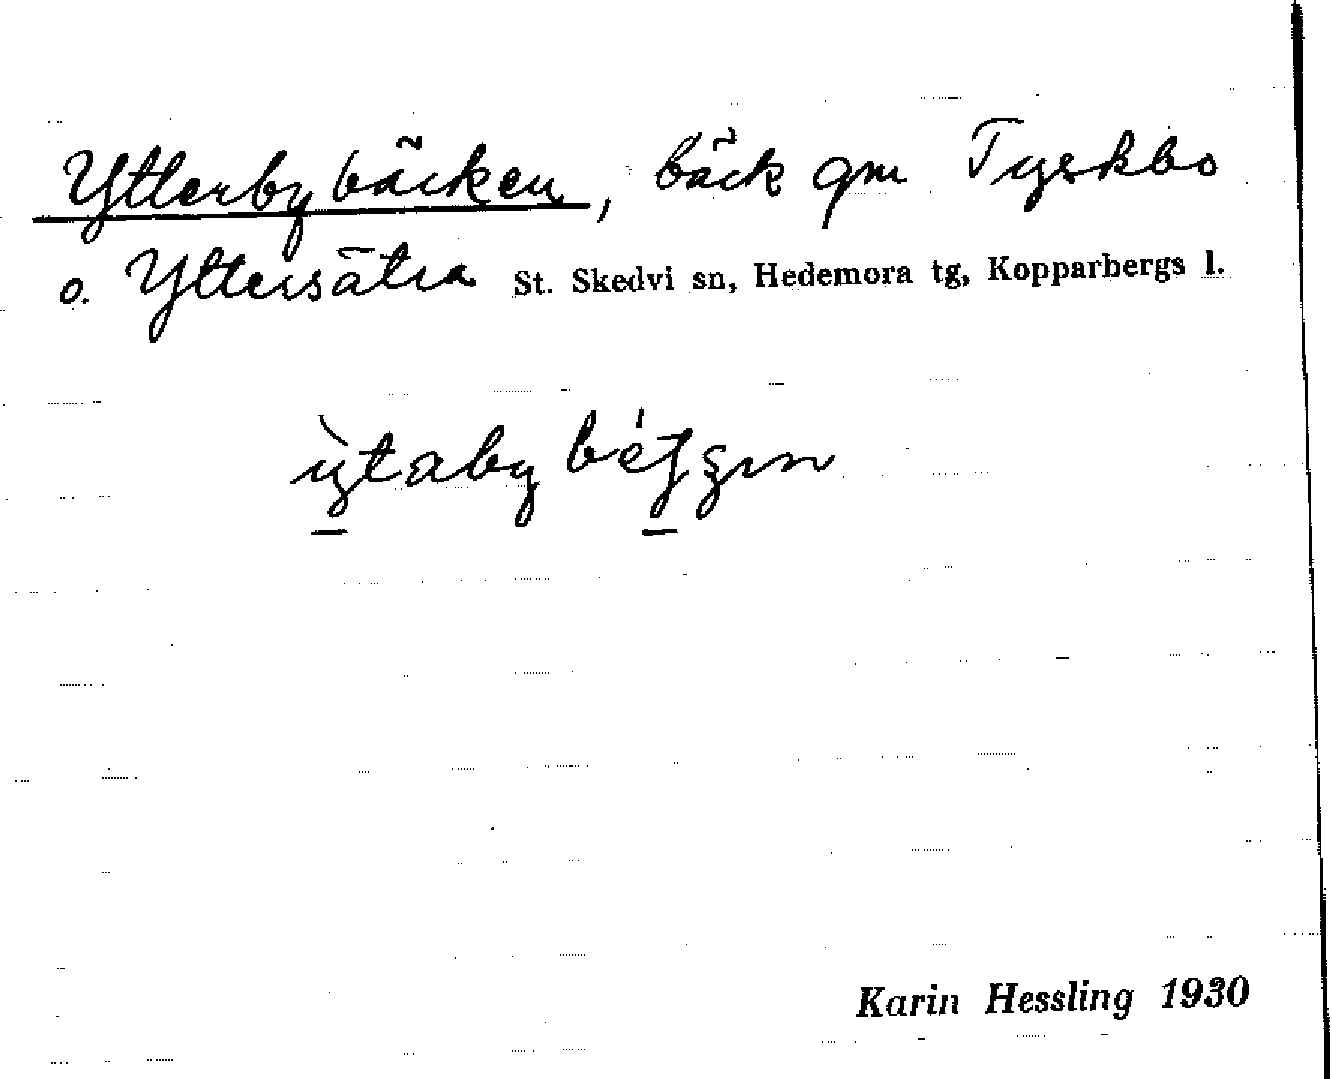 Ytterbybäcken, bäck gm Tyskbo
o. Yttersätra St. Skedvi sn, Hedemora tg, Kopparbergs l.
Karin Hessling 1930